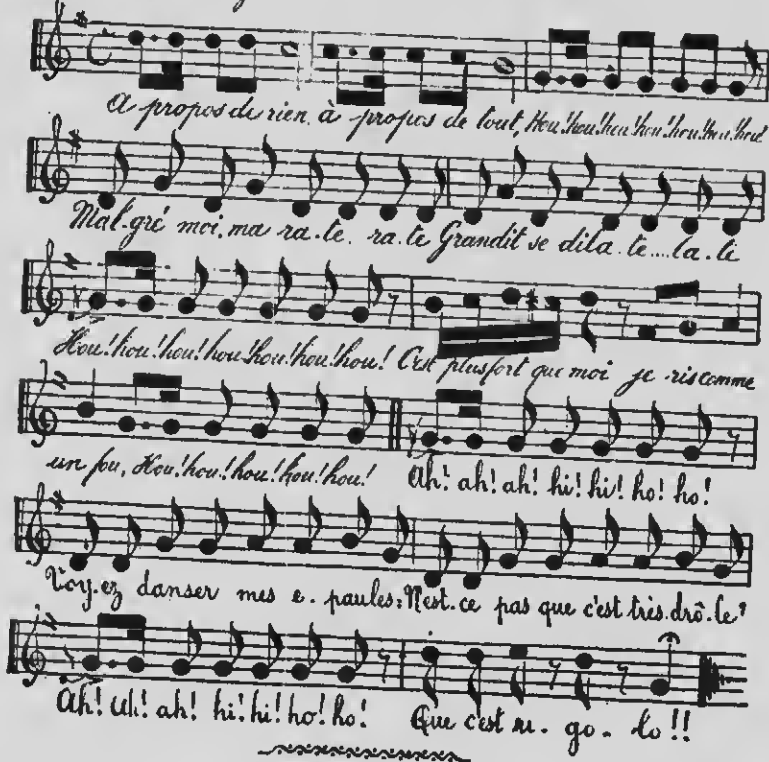 A propos de rien, à propos de tout, Hou! hou! hou! hou! hou! hou! hou!
Mal.gré moi, ma ra.te. ra.te Grandit se dila.te....la.te
Hou! hou! hou! hou! hou! hou! hou! C'est plus fort que moi je ris comme
un fou, Hou! hou! hou! hou! hou! Ah! ah! ah! hi! hi! ho! ho!
Voy.ez danser mes e.paules: N'est.ce pas que c'est très.drô.le?
Ah! ah! ah! hi! hi! ho! ho! Que c'est ri.go.lo!!